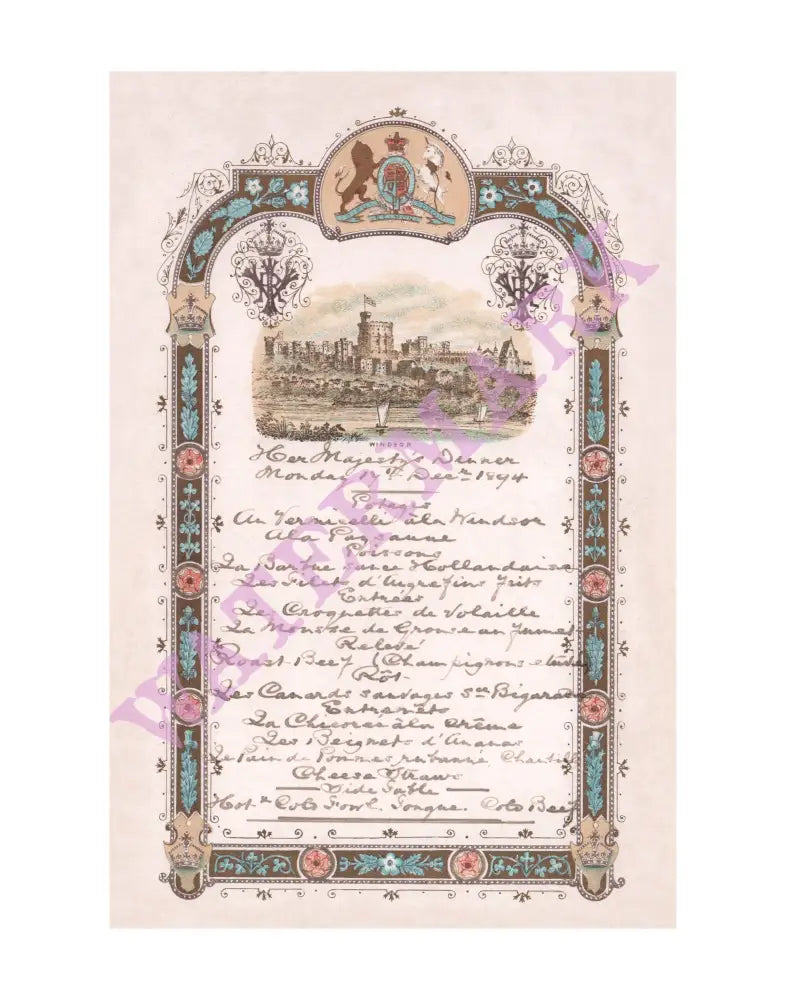 WINDSOR
Her Majesty's Dinner
Monday 17th Decr 1894
Potages
Au Vermicelle à la Windsor
A la Paysanne
Poissons
La Barbue sauce Hollandaise
Les Filets d'Aigrefins frits
Entrées
Les Croquettes de Volaille
La Mousse de Grouse au fumet
Relevé
Roast Beef (Champignons
Rôt
Les Canards sauvages sce Bigarade
Entremêts
La Chicorée à la crême
Les Beignets d'Ananas
Le Pain de Pommes rubanné Chantilly
Cheese Straws
Side Table
Hot & Cold Fowl. Tongue. Cold Beef
WATERMARK